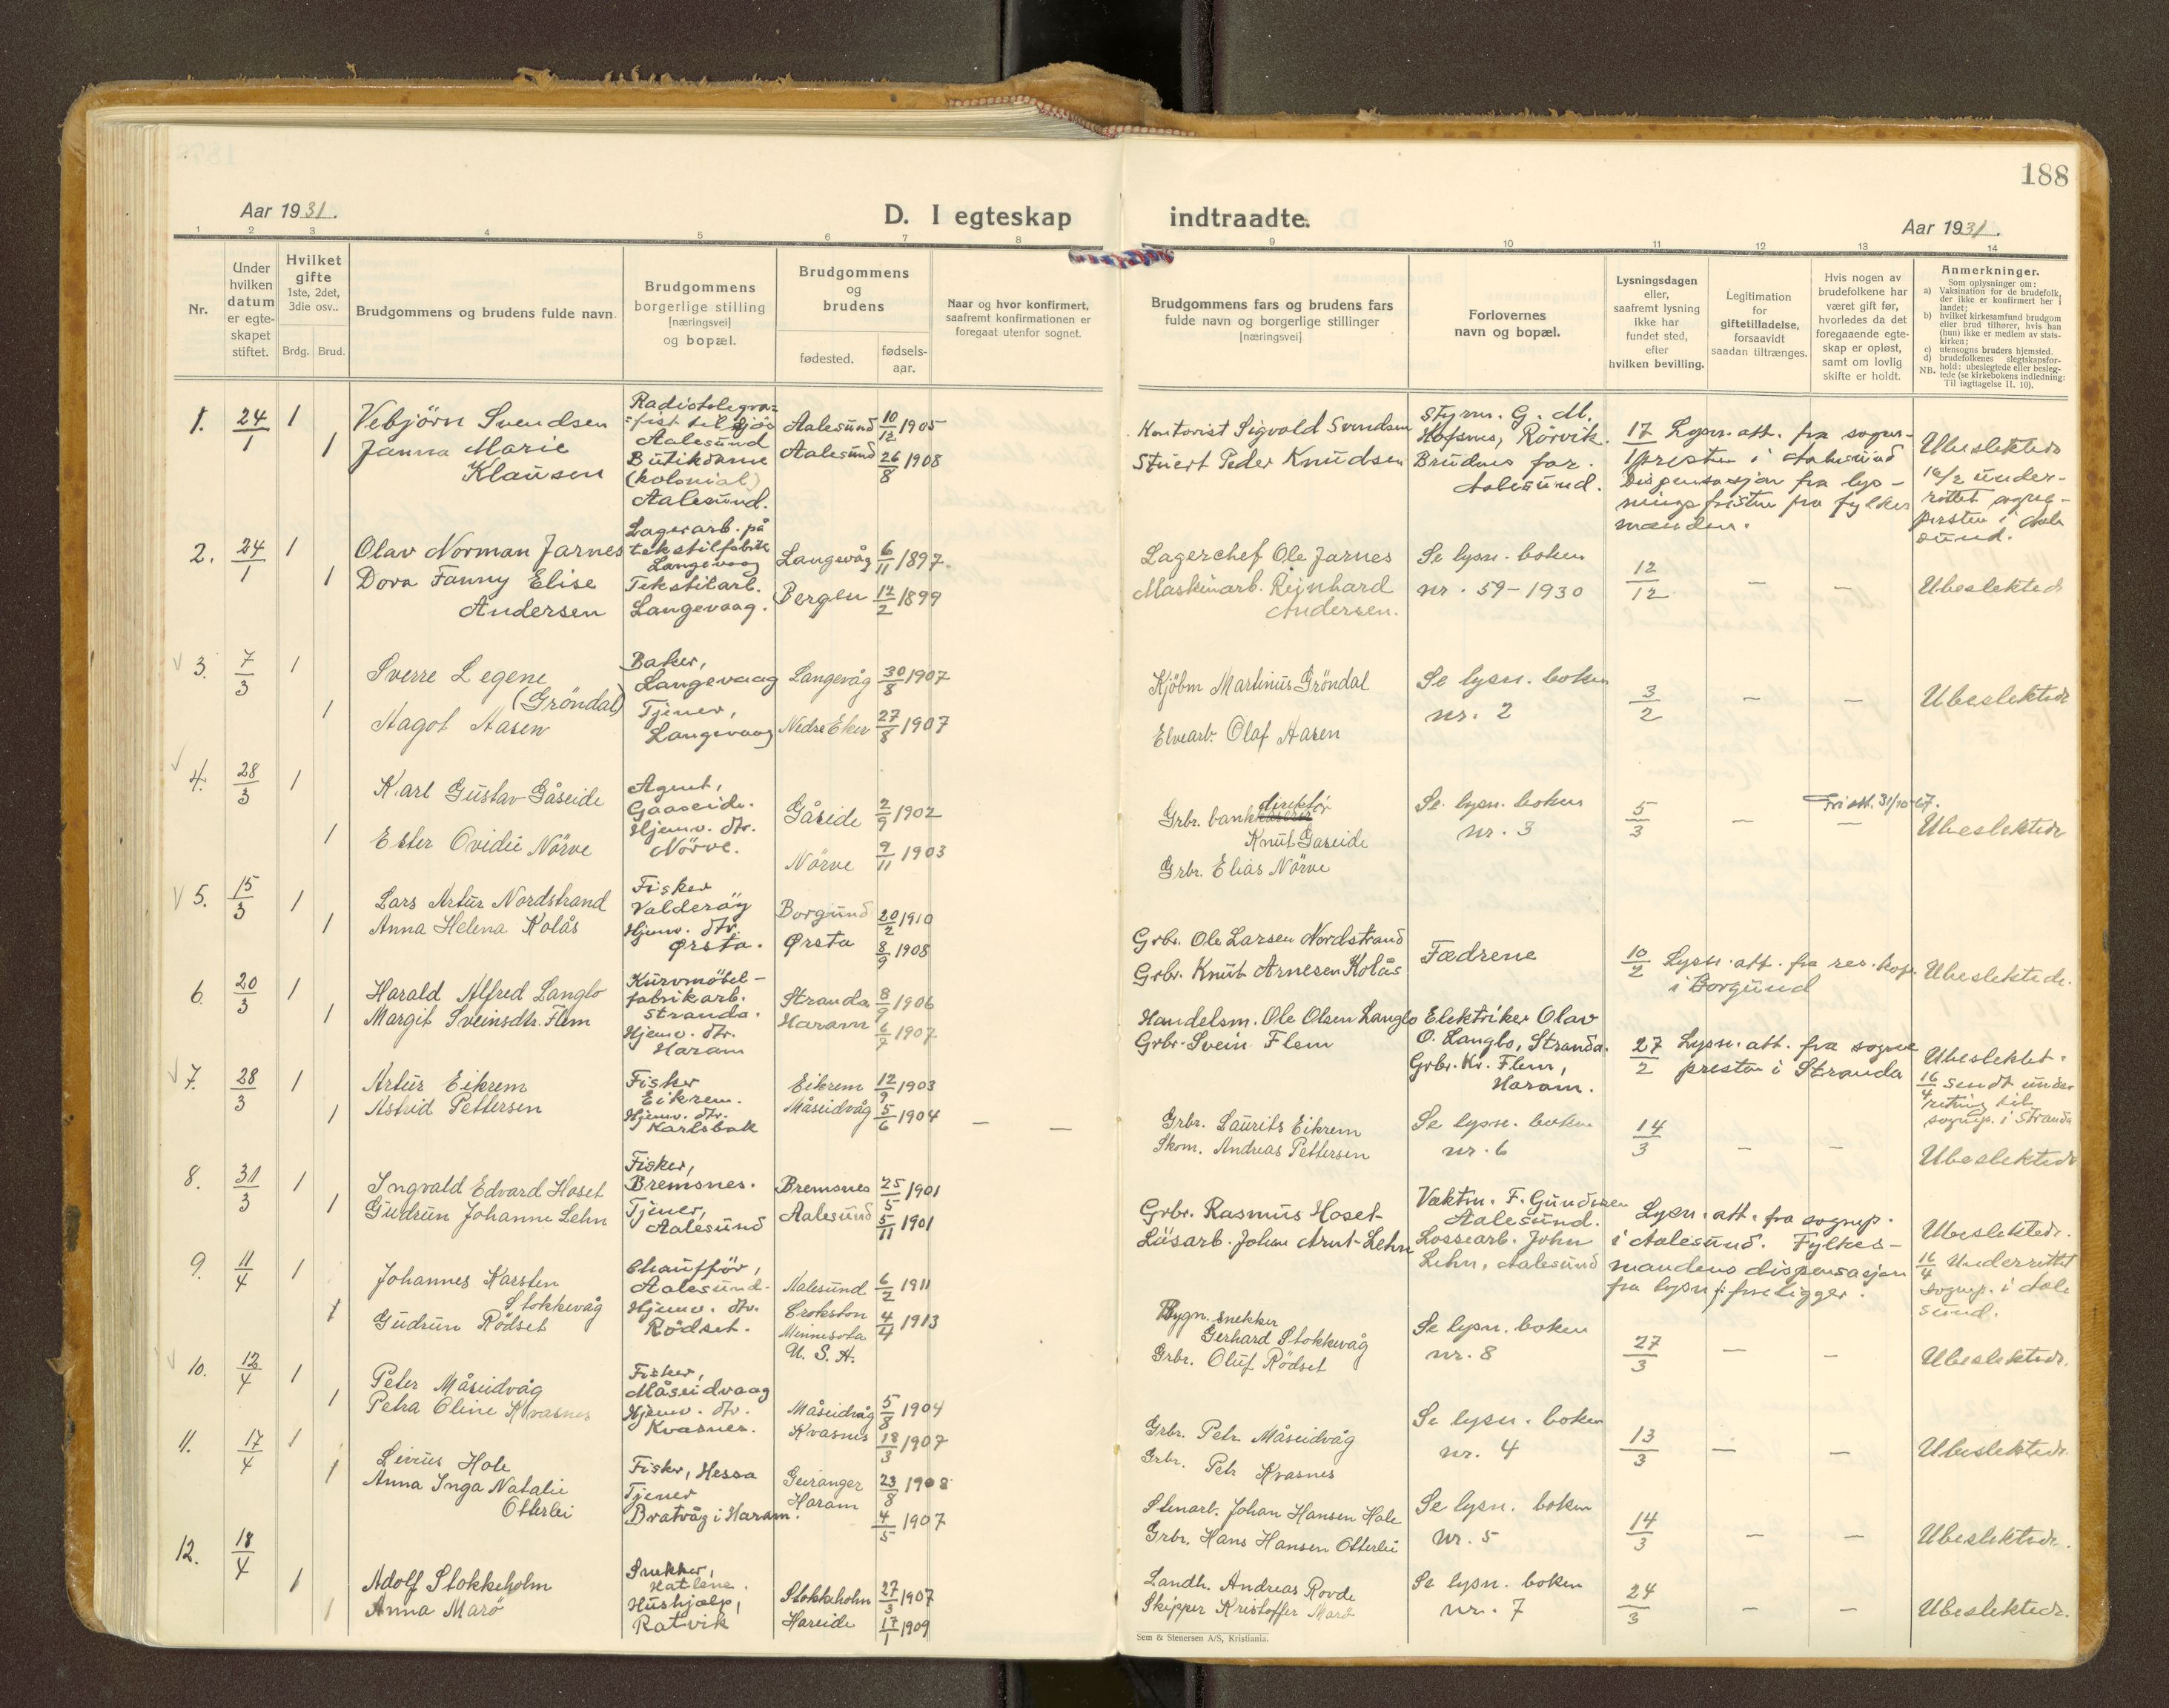 188
Aar 1931.
D. I egteskap indtraadte.
Aar 1931.
1 2 3 4 5 6 7 8 9 10 11 12 13 14
Nr.
Under hvilken datum er egteskapet stiftet.
Hvilket gifte 1ste, 2det, 3die osv..
Brdg. Brud.
Brudgommens og brudens fulde navn.
Brudgommens borgerlige stilling [næringsvei] og bopæl.
Brudgommens og brudens
fødested.
fødsels-aar.
Naar og hvor konfirmert, saafremt konfirmationen er foregaat utenfor sognet.
Brudgommens fars og brudens fars fulde navn og borgerlige stillinger [næringsvei]
Forlovernes navn og bopæl.
Lysningsdagen eller, saafremt lysning ikke har fundet sted, efter hvilken bevilling.
Legitimation for giftetilladelse, forsaavidt saadan tiltrænges.
Hvis nogen av brudefolkene har været gift før, hvorledes da det foregaaende egteskap er opløst, samt om lovlig skifte er holdt.
Anmerkninger.
Som oplysninger om:
a) Vaksination for de brudefolk, der ikke er konfirmert her i landet;
b) hvilket kirkesamfund brudgom eller brud tilhører, hvis han (hun) ikke er medlem av statskirken;
c) utensogns bruders hjemsted.
d) brudefolkenes slegtskapsforhold: ubeslegtede eller beslegtede (se kirkebokens indledning:
NB. Til iagttagelse II. 10).
1. 24/1 1 Vebjörn Svendsen Radiotelegrafist til sjös Aalesund Aalesund 10/12 1905 Kontorist Sigvald Svendsen Styrm. G. M. Hofsnes, Rörvik. 17/1 Lysn. att. fra sognepresten i Aalesund Dispensasjon fra lysningsfristen fra fylkesmanden. Ubeslektede
1 Janna Marie Klausen Butikdame (kolonial) Aalesund. Aalesund 26/8 1908 Stuert Peder Knudsen Brudens far. Aalesund. 16/2 underrettet sognepresten i Aalesund.
2. 24/1 1 Olav Norman Jarnes Lagerarb. på tekstilfabrik Langevaag Langevåg 6/11 1897. Lagerchef Ole Jarnes Se lysn. boken nr. 59-1930 12/12 – – Ubeslektede
1 Dora Fanny Elise Andersen Tekstilarb. Langevaag. Bergen 12/2 1899 Maskinarb. Reinhard Andersen.
3. 7/3 1 Sverre Legene (Gröndal) Baker, Langevaag Langevåg 30/8 1907 Kjöbm Martinus Gröndal Se lysn. boken nr. 2 3/2 – – Ubeslektede
1 Aagot Aasen Tjener, Langevaag Nedre Eker 27/8 1907 Elvearb. Olaf Aasen
4. 28/3 1 Karl Gustav Gåseide Agent, Gaaseide. Gåseide 2/9 1902 Grbr. bankdirektör Knut Gaseide Se lysn. boken nr. 3 5/3 – – 31/10-67. Ubeslektede
1 Ester Ovidie Nörve Hjemv. dtr. Nörve. Nörve 9/11 1903 Grbr. Elias Nörve
5. 15/3 1 Lars Artur Nordstrand Fisker Valderöy Borgund 20/2 1910 Grbr. Ole Larsen Nordstrand Fædrene 10/2 Lysn. att. fra res. kap. i Borgund Ubeslektede.
1 Anna Helena Kolås Hjemv. dtr. Ørsta. Ørsta 8/9 1908 Grbr. Knut Arnesen Kolås
6. 20/3 1 Harald Alfred Langlo Kurvmöbelfabrikarb. Stranda. Stranda 8/9 1906 Handelsm. Ole Olsen Langlo Elektriker Olav O. Langlo, Stranda. 27/2 Lysn. att. fra sognepresten i Stranda Ubeslektet.
1 Margit Sveinsdtr. Flem Hjemv. dtr. Haram Haram 6/9 1907 Grbr. Svein Flem Grbr. Kr. Flem, Haram. 16/4 sendt underretning til sognep. i Stranda
7. 28/3 1 Artur Eikrem Fisker Eikrem. Eikrem 12/9 1903 Grbr. Laurits Eikrem Se lysn. boken nr. 6 14/3 – – Ubeslektede
1 Astrid Pettersen Hjemv. dtr. Karlsbak Måseidvåg 5/6 1904 – – Skom. Andreas Pettersen
8. 31/3 1 Ingvald Edvard Hoset Fisker, Bremsnes. Bremsnes 25/5 1901 Grbr. Rasmus Hoset Vaktm. F. Gundersen Aalesund. Lysn. att. fra sognep. i Aalesund. Fylkesmandens dispensasjon fra lysn. foreligger. Ubeslektede.
1 Gudrun Johanne Lehn Tjener, Aalesund Aalesund 5/11 1901 Lösarb. Johan Arnt Lehn Lossearb. John Lehn, Aalesund 16/4 Underrettet sognep. i Aalesund.
9. 11/4 1 Johannes Karsten Stokkevåg Chaufför, Aalesund. Aalesund 6/2 1911 Bygn. snekker Gerhard Stokkevåg Se lysn. boken nr. 8 27/3 – – Ubeslektede.
1 Gudrun Rödset Hjemv. dtr. Rödset. Crokston Minnesota U. S. A. 4/4 1913 Grbr. Oluf Rödset
10. 12/4 1 Peter Måseidvåg Fisker, Måseidvaag Måseidvåg 5/8 1904 Grbr. Petr. Måseidvåg Se lysn. boken nr. 4 13/3 – – Ubeslektede.
1 Petra Oline Kvasnes Hjemv. dtr. Kvasnes. Kvasnes 18/3 1907 Grbr. Petr Kvasnes
11. 17/4 1 Livius Hole Fisker, Hessa Geiranger 23/8 1908 Stenarb. Johan Hansen Hole Se lysn. boken nr. 5 14/3 – – Ubeslektede.
1 Anna Inga Natalie Otterlei Tjener Bratvåg i Haram. Haram 4/5 1907 Grbr. Hans Hansen Otterlei
12. 18/4 1 Adolf Stokkeholm Snekker, Hatlene. Stokkeholm 27/3 1907 Landh. Andreas Rovde Se lysn. boken nr. 7 24/3 – – Ubeslektede.
1 Anna Marö Hushjælp, Ratvik Hareide 17/1 1909 Skipper Kristoffer Marö
Sem & Stenersen A/S, Kristiania.